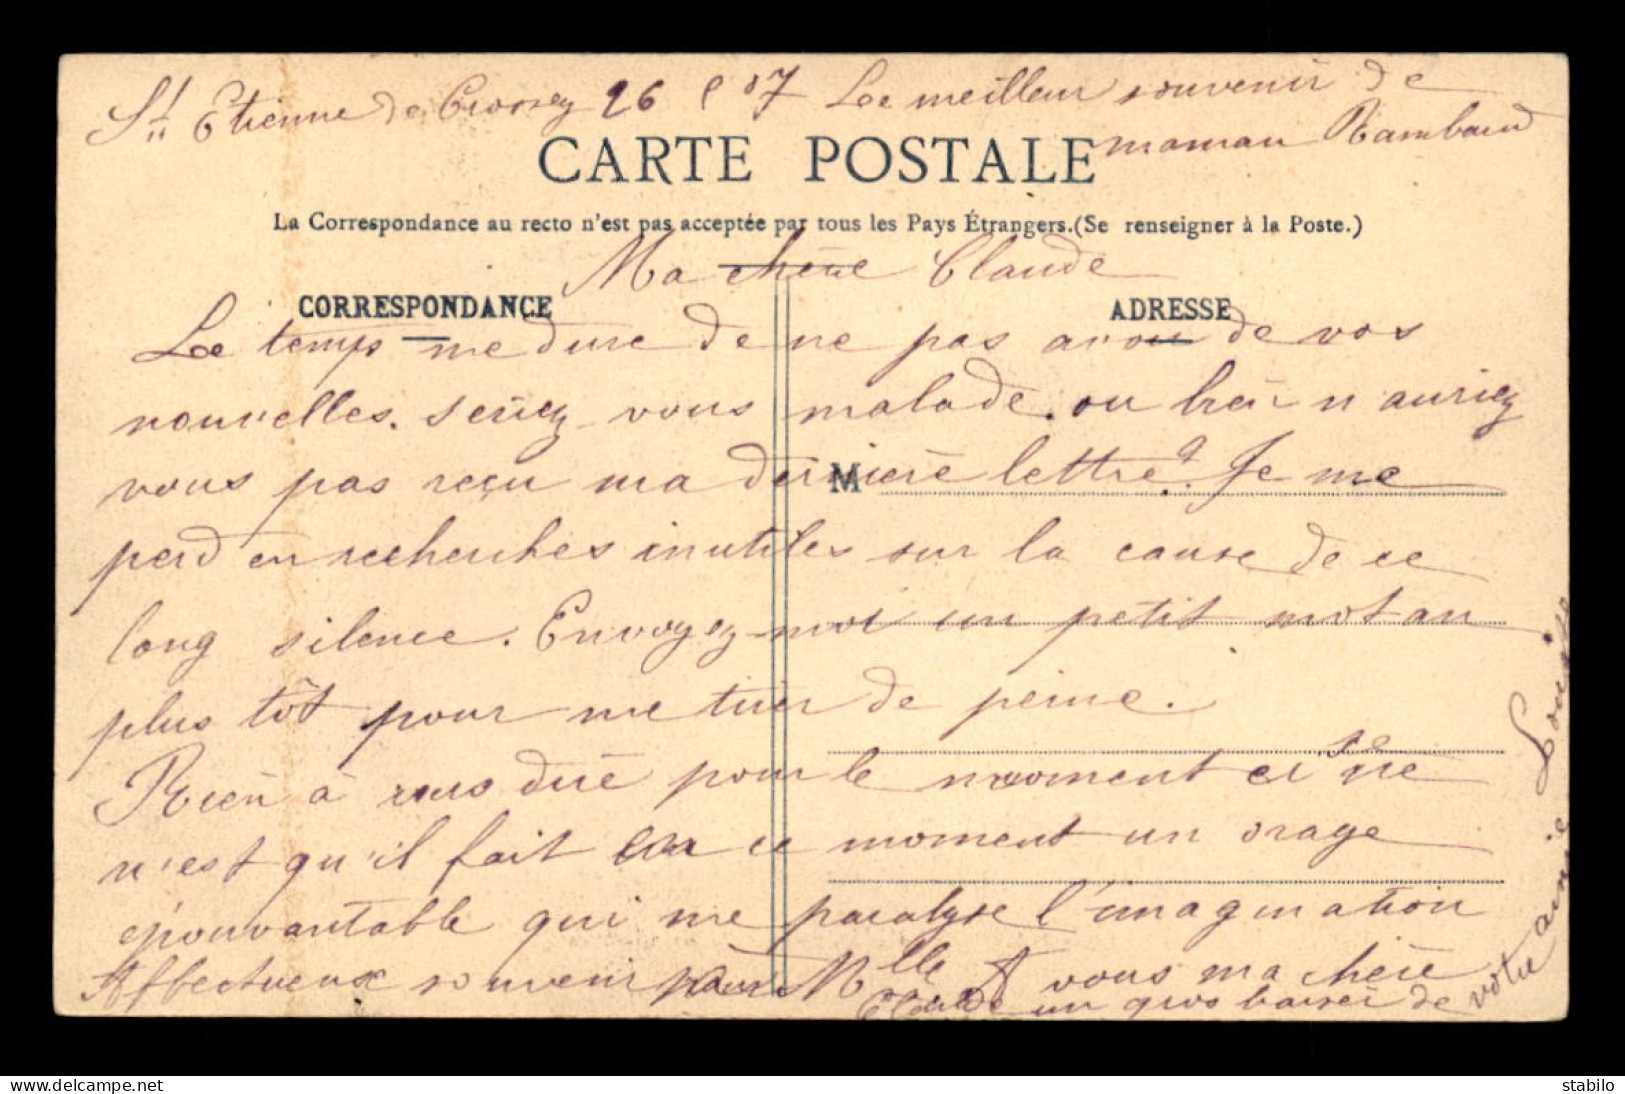 St Etienne de Crossey 26 8 07 Le meilleur souvenir de
maman Rambaud
CARTE POSTALE
La Correspondance au recto n'est pas acceptée par tous les Pays Étrangers.(Se renseigner à la Poste.)
Ma chère Claude
CORRESPONDANCE
ADRESSE
Le temps me dure de ne pas avoir de vos
nouvelles. seriez-vous malade. ou bien n'auriez
vous pas reçu ma dernière lettre? Je me
M
perd en recherches inutiles sur la cause de ce
long silence. Envoyez-moi un petit mot au
plus tôt pour me tirer de peine.
Rien à vous dire pour le moment si se ne
n'est qu'il fait en ce moment un orage
épouvantable qui me paralyse l'imagination
Affectueux souvenir pour Mlle A vous ma chère
Claude un gros baiser de votre amie Louise
stabilo